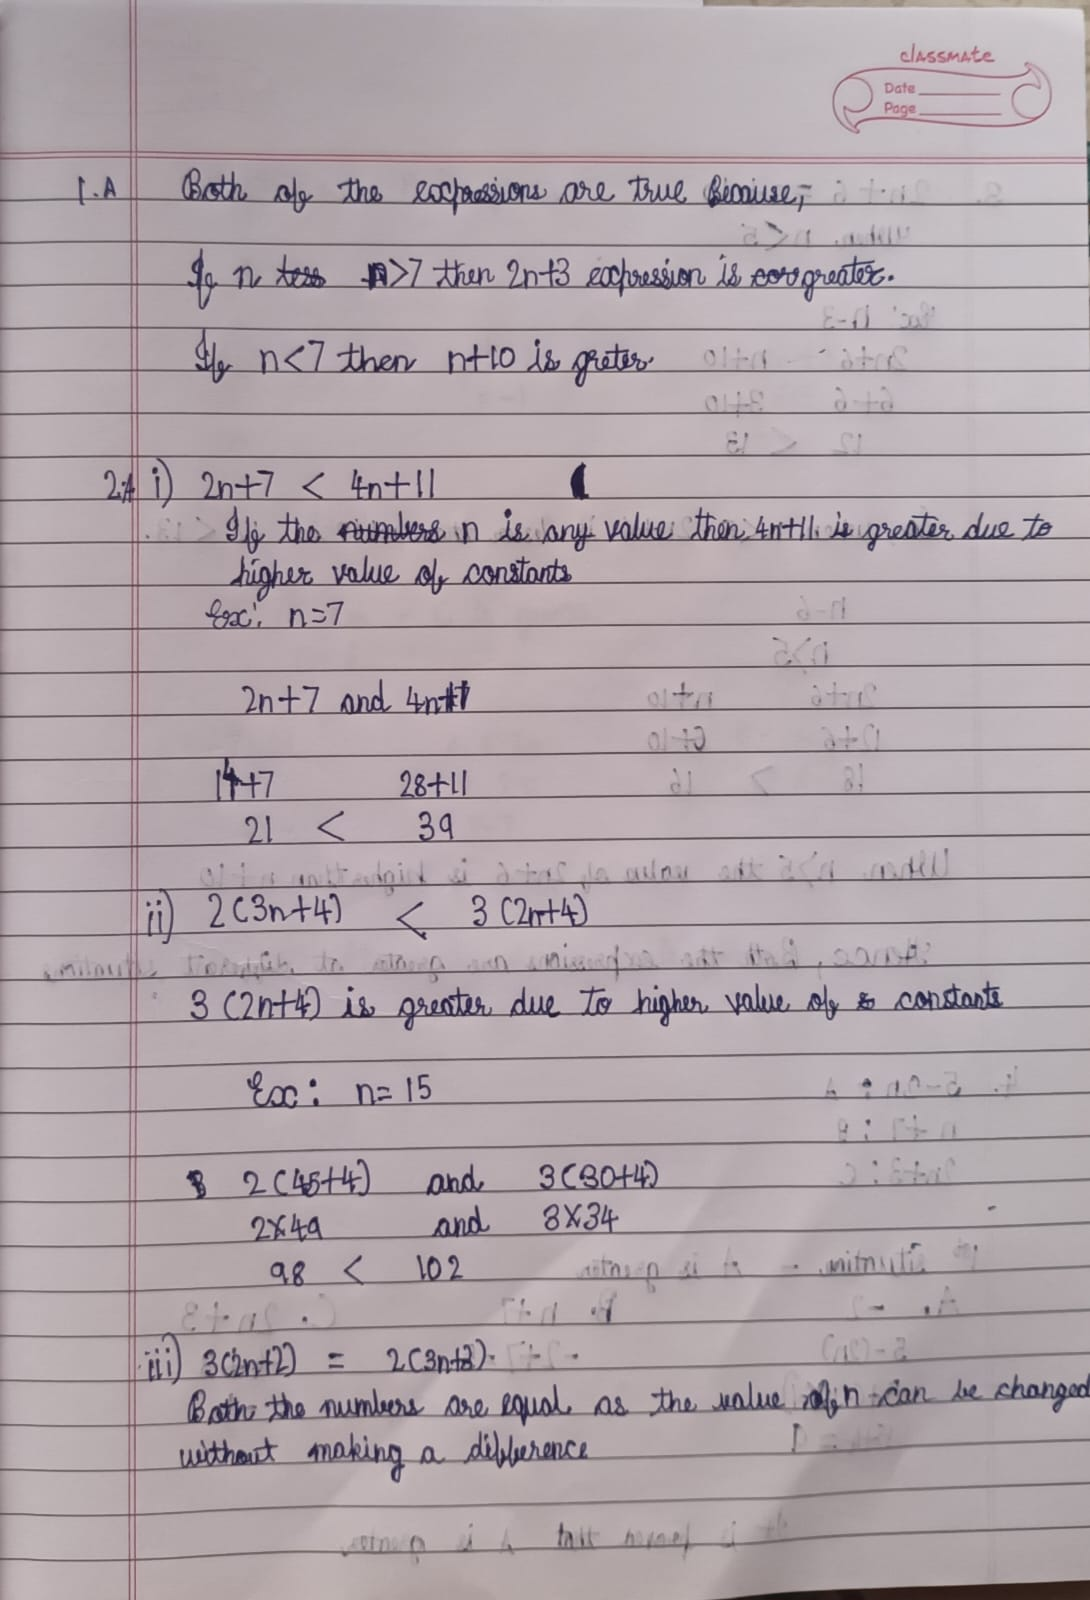 classmate
Date
Page
1.A Both of the expressions are true Because,-
If n less n>7 then 2n+3 expression is greater.
If n<7 then n+10 is greter.
2.A i) 2n+7 < 4n+11
If the numbers n is any value then 4n+11 is greater due to
higher value of constants
Ex: n=7
2n+7 and 4n+11
14+7 28+11
21 < 39
ii) 2(3n+4) < 3(2n+4)
3(2n+4) is greater due to higher value of constants
Ex: n=15
2(45+4) and 3(30+4)
2×49 and 3×34
98 < 102
iii) 3(2n+2) = 2(3n+3)
Both the numbers are equal as the value of n can be changed
without making a difference